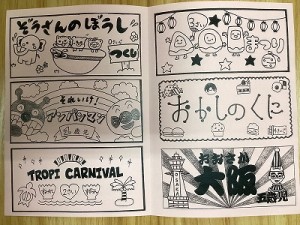 ぞうさんのぼうし
つくし
まつり
それいけ!
アンパンマン
おかしのくに
TROPI CARNIVAL
おおさか
大阪
五歳児